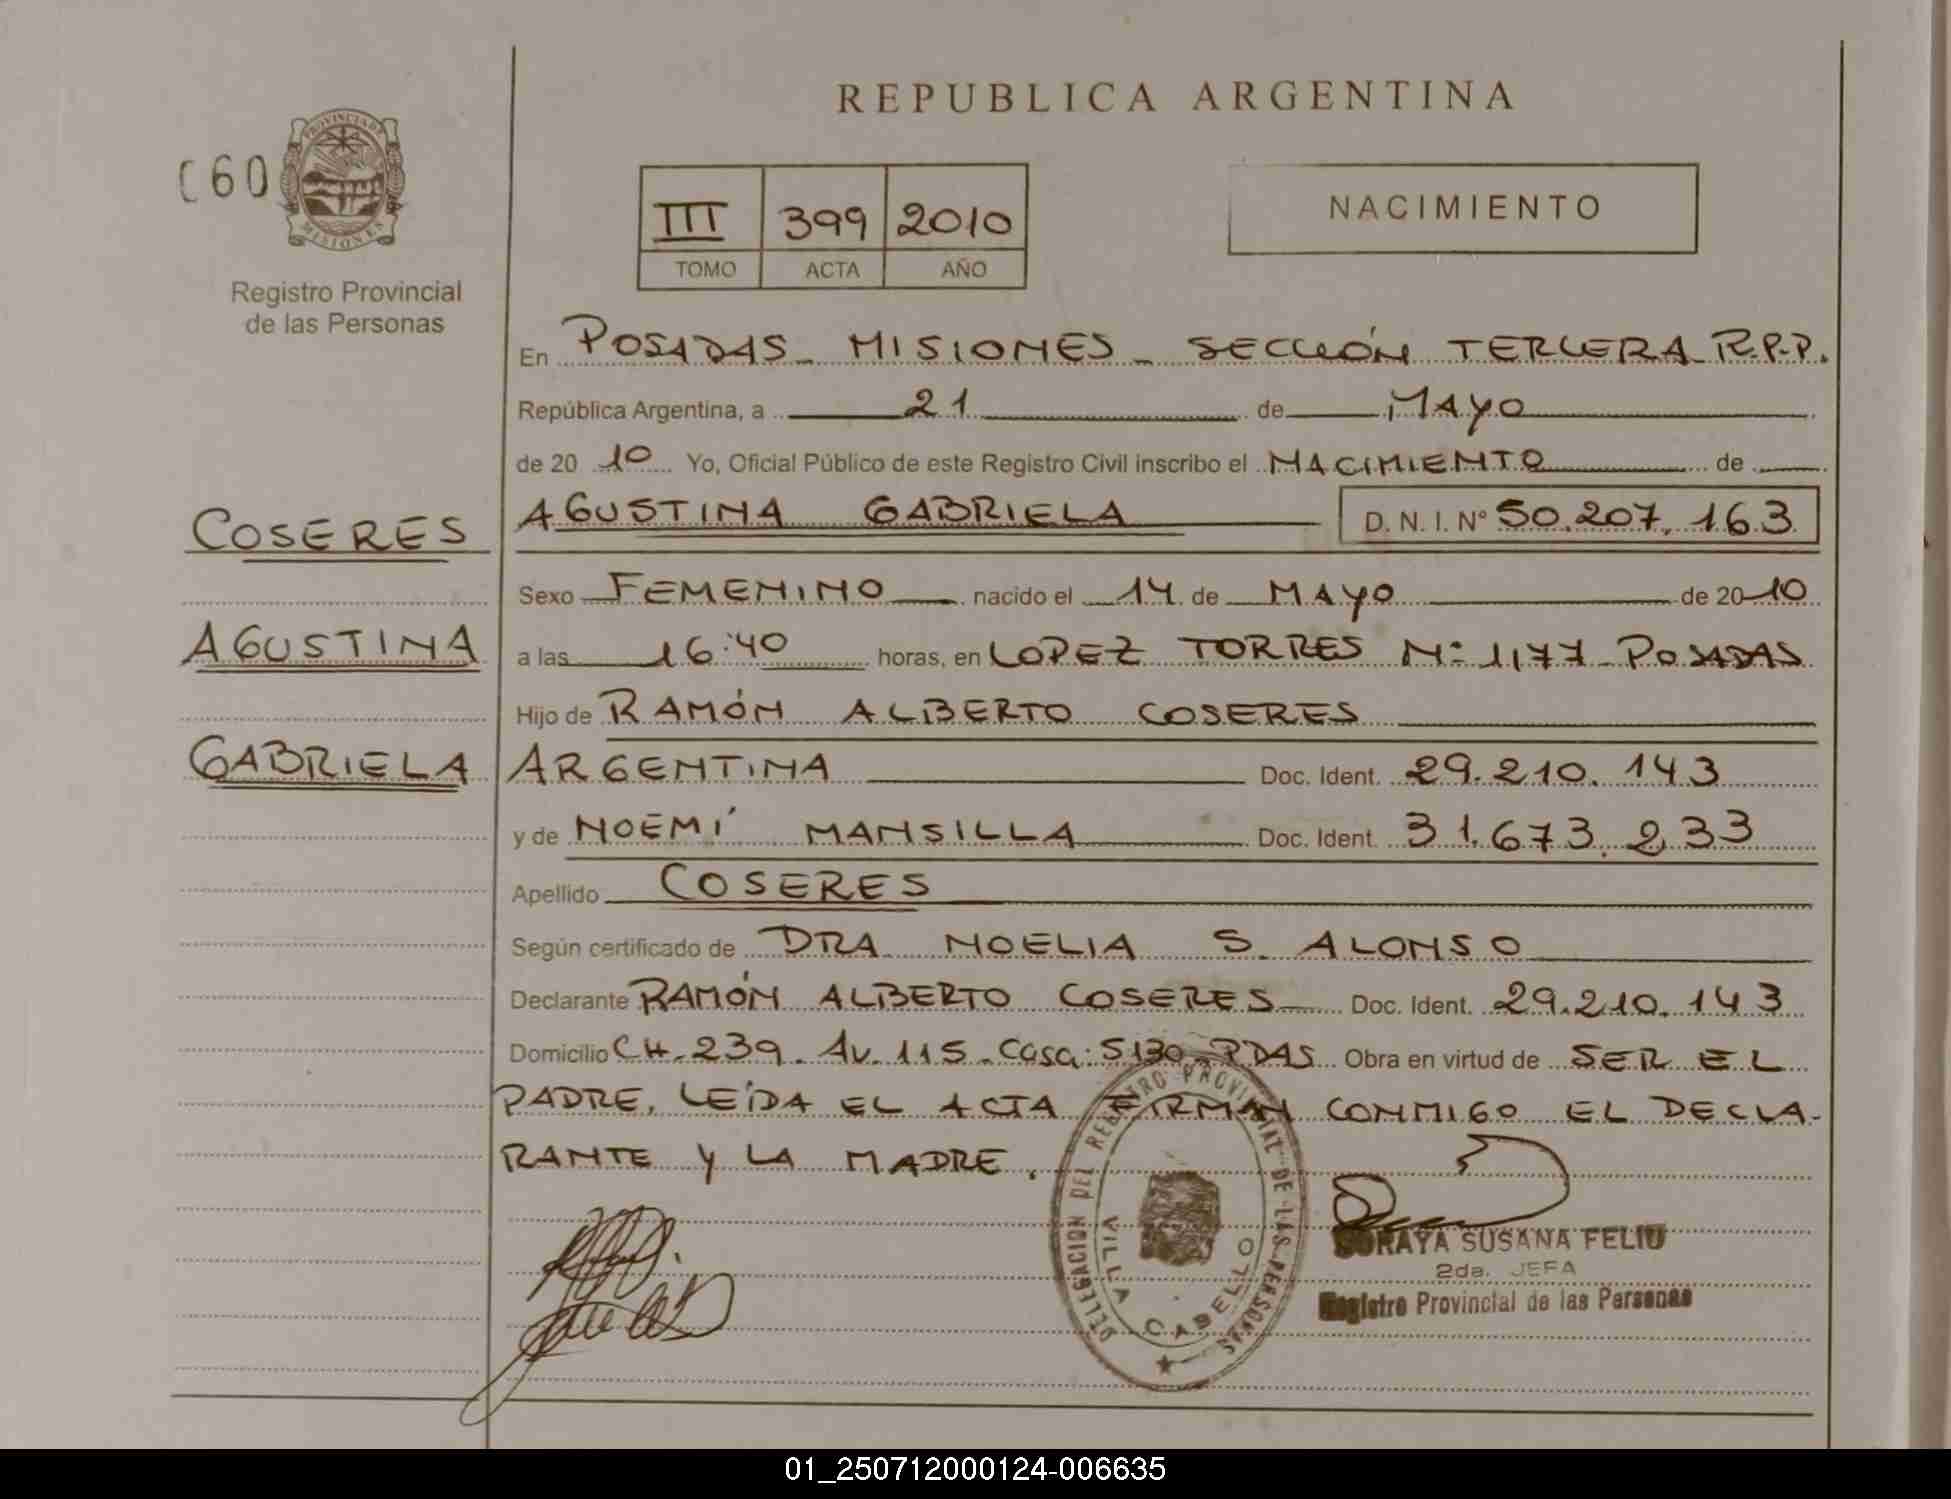 REPUBLICA ARGENTINA
C60
PROVINCIA DE
MISIONES
Registro Provincial
de las Personas
III 399 2010
TOMO ACTA AÑO
NACIMIENTO
En POSADAS - MISIONES - SECCIÓN TERCERA R.P.P.
República Argentina, a 21 de MAYO
de 2010 Yo, Oficial Público de este Registro Civil inscribo el NACIMIENTO de
COSERES
AGUSTINA
GABRIELA
AGUSTINA GABRIELA D. N. I. Nº 50.207.163
Sexo FEMENINO nacido el 14 de MAYO de 2010
a las 16:40 horas, en LOPEZ TORRES Nº 1,177 - POSADAS
Hijo de RAMÓN ALBERTO COSERES
ARGENTINA Doc. Ident. 29.210.143
y de NOEMÍ MANSILLA Doc. Ident. 31.673.233
Apellido COSERES
Según certificado de DRA NOELIA S. ALONSO
Declarante RAMÓN ALBERTO COSERES Doc. Ident. 29.210.143
Domicilio CH. 239. AV. 115. Casa: 5130 - PDAS Obra en virtud de SER EL
PADRE. LEÍDA EL ACTA FIRMAN CONMIGO EL DECLA-
RANTE Y LA MADRE.
DELEGACION DEL REGISTRO PROVINCIAL DE LAS PERSONAS
VILLA CABELLO
SORAYA SUSANA FELIU
2da. JEFA
Registro Provincial de las Personas
01_250712000124-006635